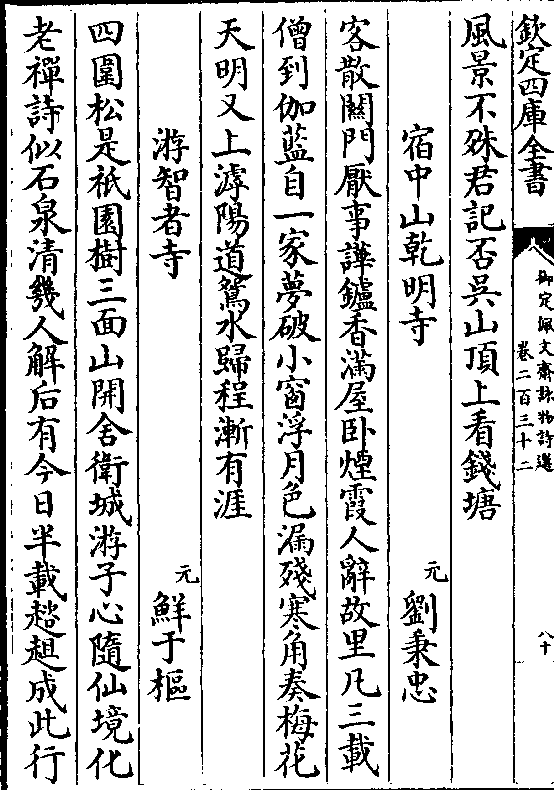 欽定四庫全書
御定佩文齋詠物詩選
卷二百三十二
八十
風景不殊君記否吳山頂上看錢塘
宿中山乾明寺
元
劉秉忠
客散關門厭事譁鑪香滿屋卧煙霞人辭故里凡三載
僧到伽藍自一家夢破小窗浮月色漏殘寒角奏梅花
天明又上滹陽道駑水歸程漸有涯
游智者寺
元
鮮于樞
四圍松是祇園樹三面山開舍衛城游子心隨仙境化
老禪詩似石泉清幾人解后有今日半載趦趄成此行